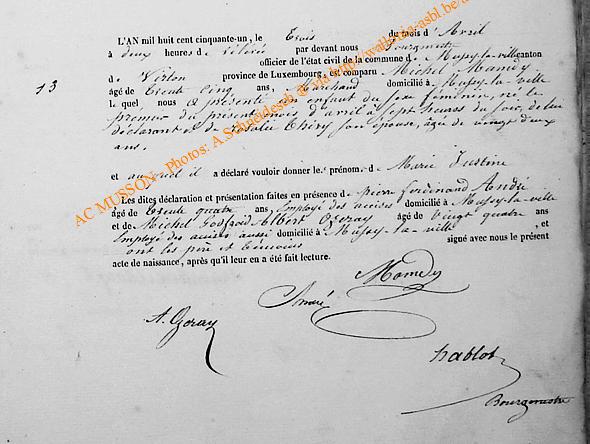 L'AN mil huit cent cinquante-un, le Trois du mois d'Avril
à deux heures de relevée par devant nous Bourgmestre
officier de l'état civil de la commune de Mussy-la-ville canton
de Virton province de Luxembourg, est comparu Michel Mamdy
13
âgé de Trente Cinq ans, Marchand domicilié à Mussy-la-ville
lequel nous a présenté un enfant du sexe féminin, né le
premier du présent mois d'avril à sept heures du soir, de lui
déclarant et de Rosalie Thiry son épouse, âgée de vingt deux
ans.
et auquel il a déclaré vouloir donner les prénoms de Marie Justine
Les dites déclaration et présentation faites en présence de pierre Ferdinand André
âgé de Trente quatre ans Employé des accises domicilié à Mussy-la-ville
et de Michel Godfroid Albert Ozeray âgé de Vingt quatre ans
Employé des accises aussi domicilié à Mussy-la-ville, et
ont les père et témoins signé avec nous le présent
acte de naissance, après qu'il leur en a été fait lecture.
Mamdy
André
A. Ozeray
hablot
Bourgmestre
AC MUSSON - Photos: A.Schneidesch & via http://wallonia-asbl.be/